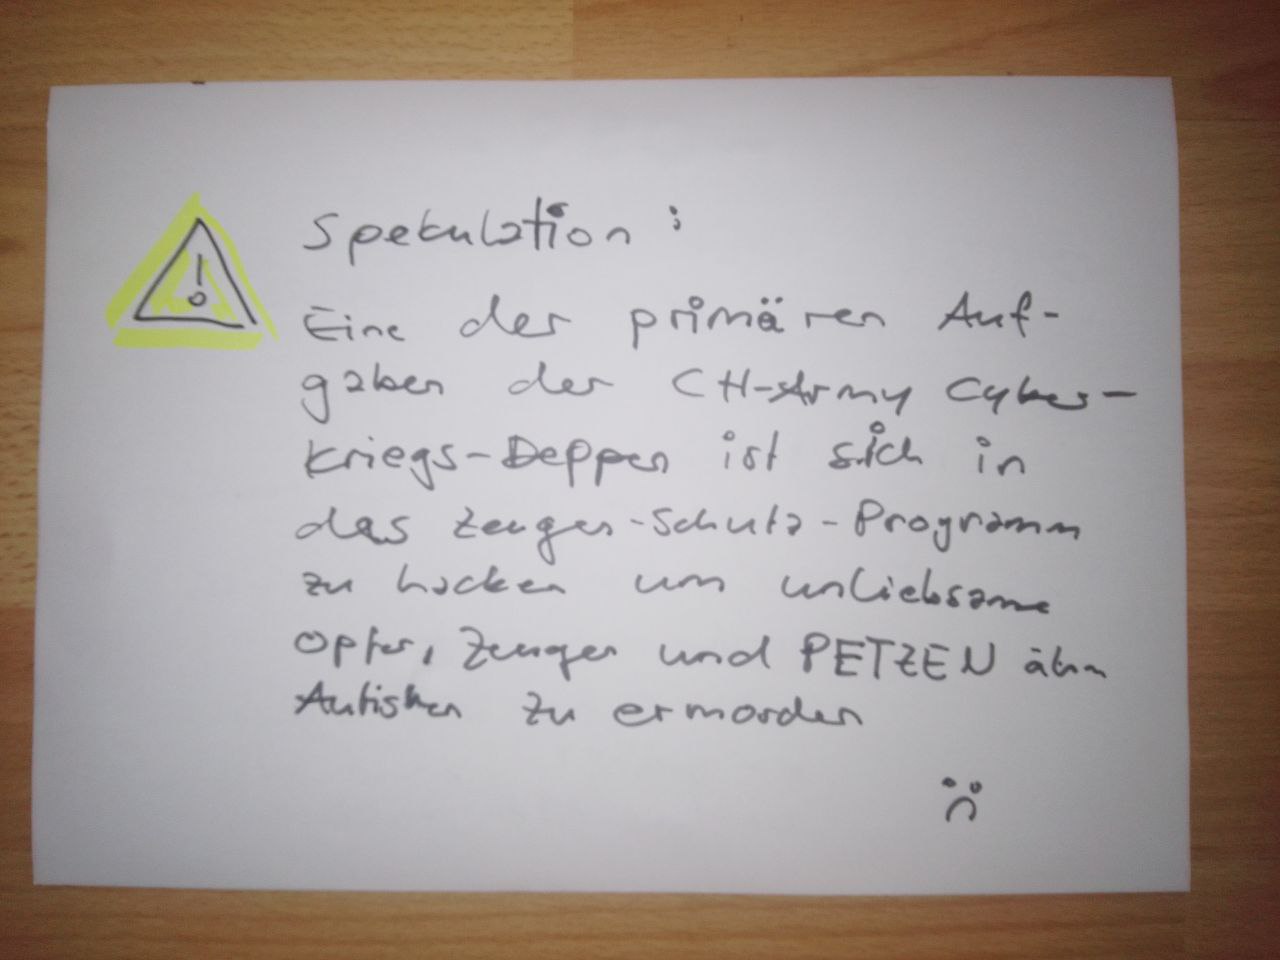 !
Spekulation:
Eine der primären Auf-
gaben der CH-Army Cyber-
kriegs-Deppen ist sich in
das Zeugen-Schutz-Programm
zu hacken um unliebsame
Opfer, Zeugen und PETZEN ähm
Autisten zu ermorden
:(